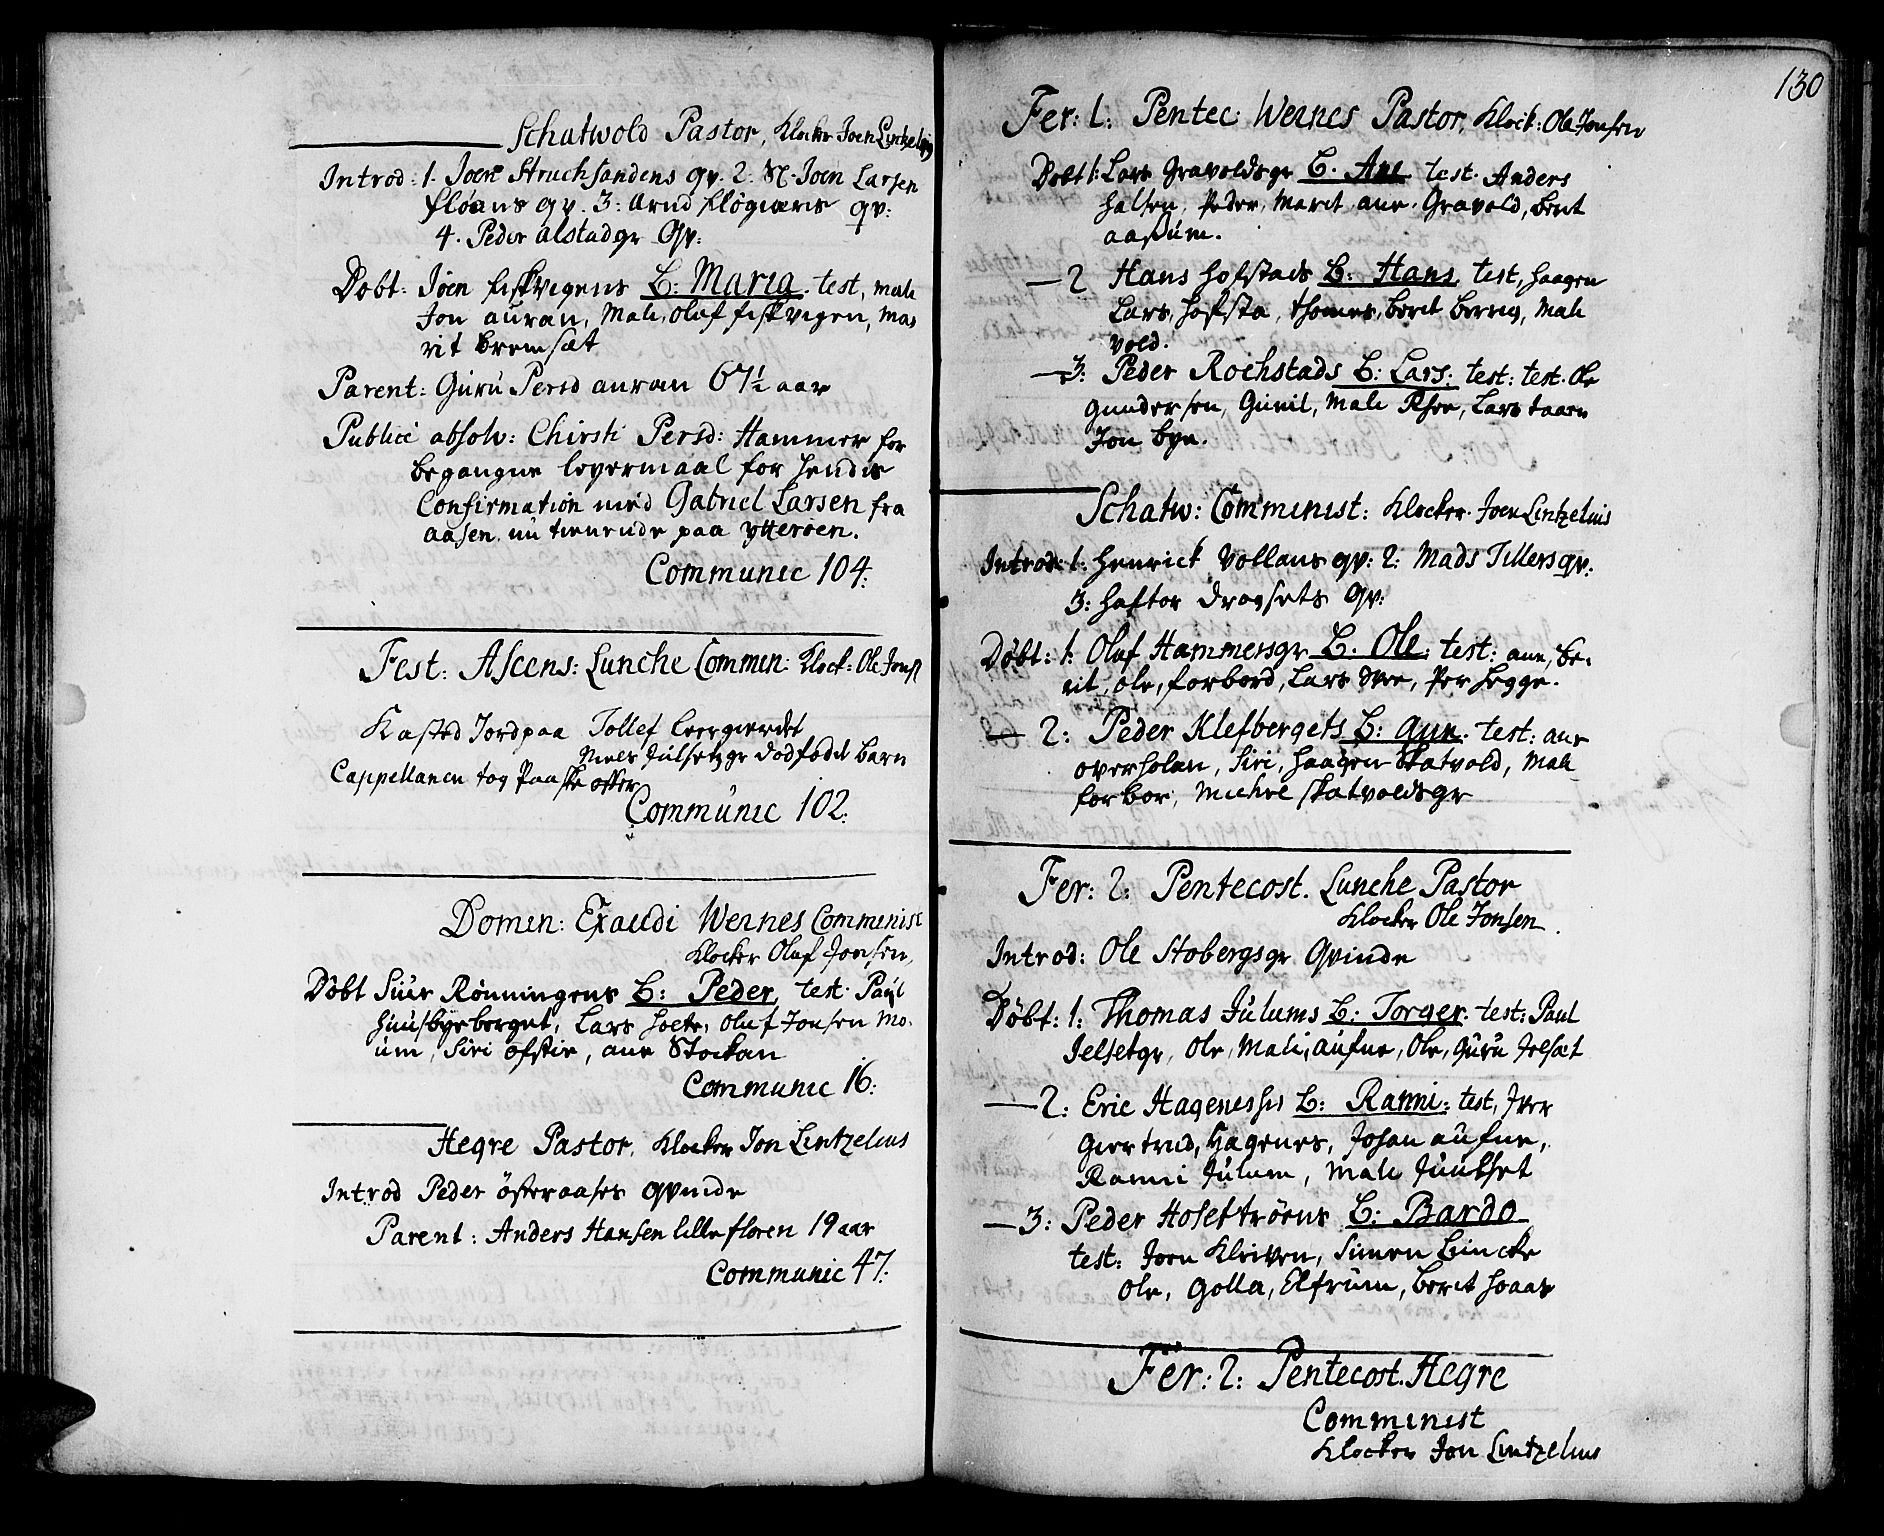 Schatwold Pastor, Klocker Joen Lintzelius
Introd: 1. Joen Struchsandens qv. 2: Joen Larsen
fløans qv. 3: Arnd Kløgiæris qv:
4. Peder alstadgr Qv:
Døbt: Joen fiskvigens B: Maria. test, mali
Jon auran, Mali, oluf fiskvigen, Ma-
rit bremsæt
Parent: Guru Persd auran 67½ aar
Publicè absolv: Chirsti Persd: Hammer for
begangne leyermaal for hendis
Confirmation med Gabriel Larsen fra
aasen, nu tienende paa ytterøen.
Communic 104:
Fest: Ascens: Lunche Commin: Klock: Ole Jons
Kasted Jord paa Tollef leergierdet
Niels Julsetgr dødfødd barn
Cappellanen tog Paaske offer
Communic 102:
Domin: Exaudi Wernes Comminist
Klocker Oluf Jonsen,
Døbt Siur Rønningens B: Peder, test. Paul
huusbyeberget, Lars hoete, oluf Jonsen Mo-
um, Siri ofstie, ane Stockan
Communic 16:
Hegre Pastor, Klocker Jon Lintzelius
Introd Peder østeraases qvinde
Parent: Anders Hansen lille floren 19 aar
Communic 47:
130
Fer: 1: Pentec: Wernes Pastor, Klock: Ole Jonsen
Døbt 1: Lars Gravoldsgr B. Ane test. Anders
halsen, Peder, Marit ane. Gravold, berit
aassum.
— 2 Hans hofstads B: Hans test, haagen
Lars, hofsta, thomes, berit berng, Mali
vold.
— 3: Peder Rochstads B: Lars: test: test. Ole
gundersen, Gunil, Mali Rhoe, Lars taarn
Jon bye.
Schatw: Comminist: Klocker Joen Lintzelius
Introd: 1: Henrick Vollans qv: 2: Mads Tillers qv:
3: haftor Drogsets Qv:
Døbt: 1: Oluf Hammersgr B. Ole: test: ane, be-
rit, ole, forbord, Lars Moe, Per hegge.
— 2: Peder Klefbergets B: Gun. test: ane
overholan, Siri, haagen Skatvold, Mali
forbor, Michel skatvoldsgr
Fer: 2: Pentecost. Lunche Pastor
Klocker Ole Jonsen.
Introd: Ole Stobergsgr Qvinde
Døbt: 1: Thomas Julums B: Torger. test: Paul
Jelsetgr, Ole, Mali, aufne, Ole, Guru Jelsæt
— 2: Eric Hagenesses B: Ranni: test, Iver
Giertrud, Hagenes, Johan aufne,
Ranni Julum, Mali Juulset
— 3: Peder Hosettrøens B: Bardo
test: Joen Kleiven, Simen Lincke
Ole, Golla, Elfrum, berit hoaas
Fer: 2: Pentecost. Hegre
Comminist
Klocker Jon Lintzelius